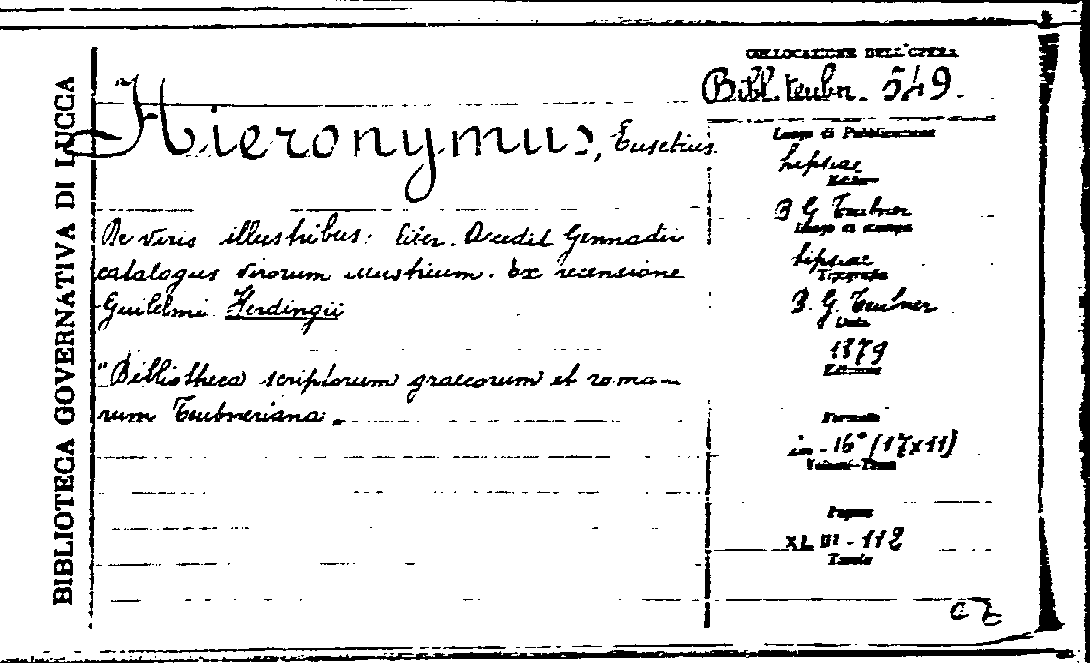 BIBLIOTECA GOVERNATIVA DI LUCCA
COLLOCAZIONE DELL'OPERA
Bibl. teubn. 549.
Hieronymus, Eusebius.
De viris illustribus: liber. Accedit Gennadii
catalogus virorum illustrium. Ex recensione
Guilelmi Herdingii
"Bibliotheca scriptorum graecorum et roma-
rum Teubneriana.
Luogo di Pubblicazione
Lipsiae
Editore
B G Teubner
Luogo di stampa
Lipsiae
Tipografo
B. G. Teubner
Data
1879
Edizione
Formato
in-16° (17x11)
Volumi-Tomi
Pagine
XLIII-112
Tavole